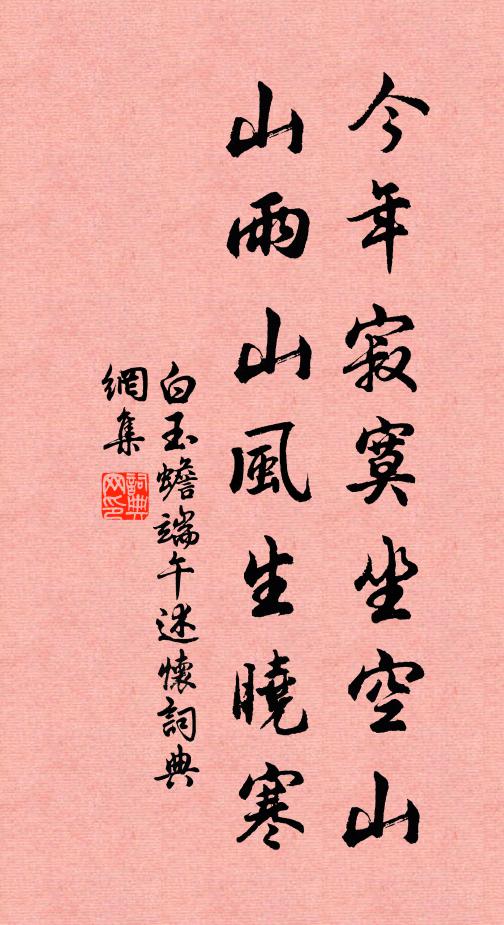 今年寂寞坐空山
山雨山風生曉寒
白玉蟾端午述懷詞典
網集
詞典網印